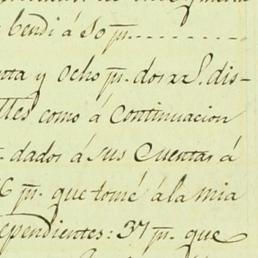 bendi á 50 p.
nta y ocho p. dos rr.s dis-
tles como á continuacion
dados á sus Cuentas á
6 p. que tomé á la mia
ependientes: 37 p. que